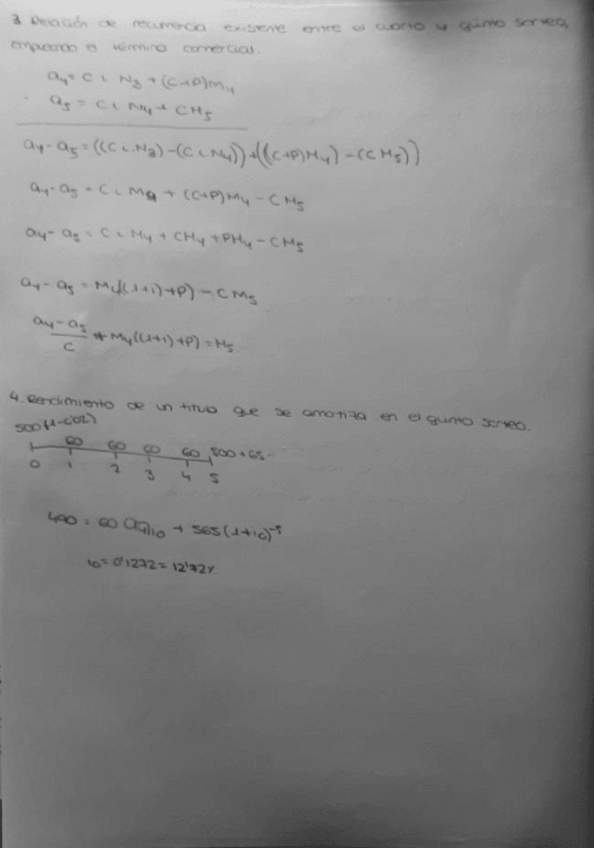 3 Relación de recurrencia existente entre el cuarto y quinto sorteo,
empleando el término comercial.
a4 = C i N3 + (C+P)M4
a5 = C i N4 + CM5
a4 - a5 = ((C i N3) - (C i N4)) + ((C+P)M4) - (CM5))
a4 - a5 = C i M4 + (C+P)M4 - CM5
a4 - a5 = C i M4 + CM4 + PM4 - CM5
a4 - a5 = M4((1+i)+P) - CM5
a4 - a5 / C + M4((1+i)+P) = M5
4. Rendimiento de un título que se amortiza en el quinto sorteo.
500(1-0'02)
60 60 60 60 500+65
0 1 2 3 4 5
490 = 60 a4|i0 + 565(1+i0)^-5
i0 = 0'1272 = 12'72%